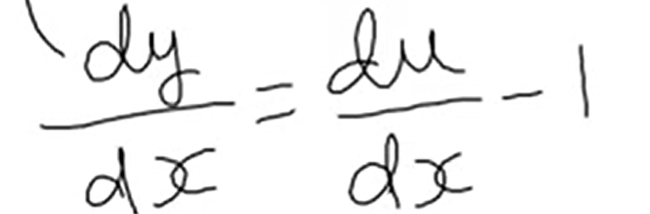 dy/dx = du/dx - 1